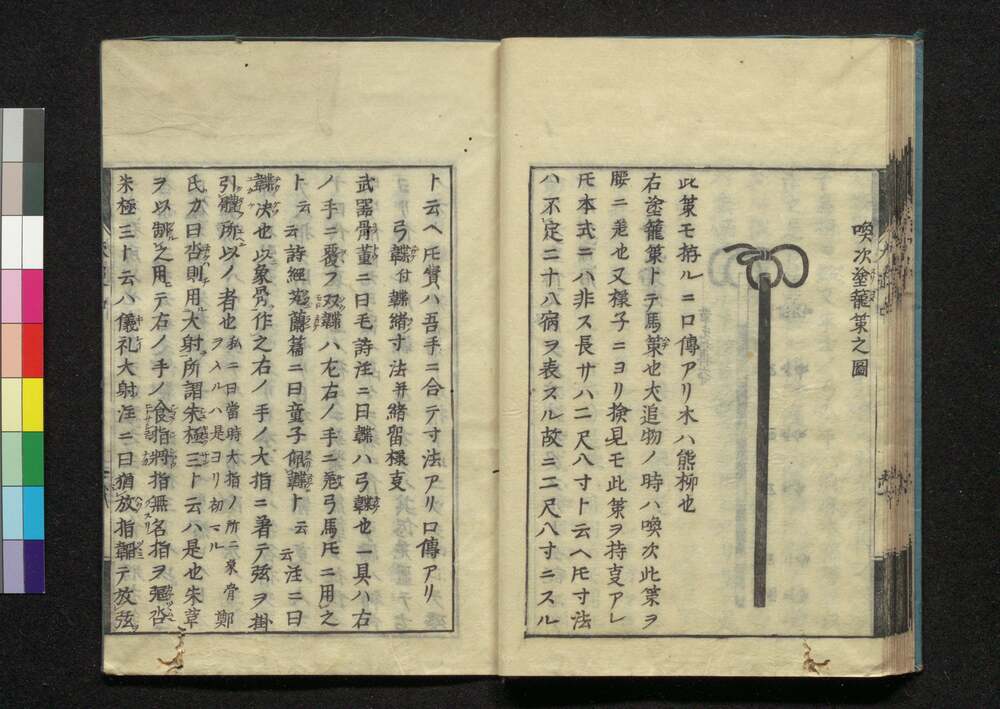 喚次塗籠策之圖
此策モ拵ルニ口傳アリ木ハ熊柳也
右塗籠策トテ馬策也犬追物ノ時ハ喚次此策ヲ
腰ニ差也又様子ニヨリ検見モ此策ヲ持叓アレ
𪜈本式ニハ非ス長サハ二尺八寸ト云ヘ𪜈寸法
ハ不定二十八宿ヲ表スル故ニ二尺八寸ニスル
ト云ヘ𪜈實ハ吾手ニ合テ寸法アリ口傳アリ
弓韘付韘緒寸法并緒留様叓
武器骨董ニ曰毛詩注ニ曰韘ハ弓韘也一具ハ右
ノ手ニ覆フ双韘ハ左右ノ手ニ着弓馬𪜈ニ用之
ト云詩經芄蘭篇ニ曰童子佩韘ト云云注ニ曰
韘决也以象骨作之右ノ手ノ大指ニ著テ弦ヲ掛
引體所以ノ者也私ニ曰當時大指ノ所ニ象骨ヲ入ルハ是ヨリ初マル鄭
氏カ曰沓則用大射所謂朱極三ト云ハ是也朱韋
ヲ以制之用テ右ノ手ノ食指將指無名指ヲ彄沓
朱極三ト云ハ儀礼大射注ニ曰猶放指韜テ放弦